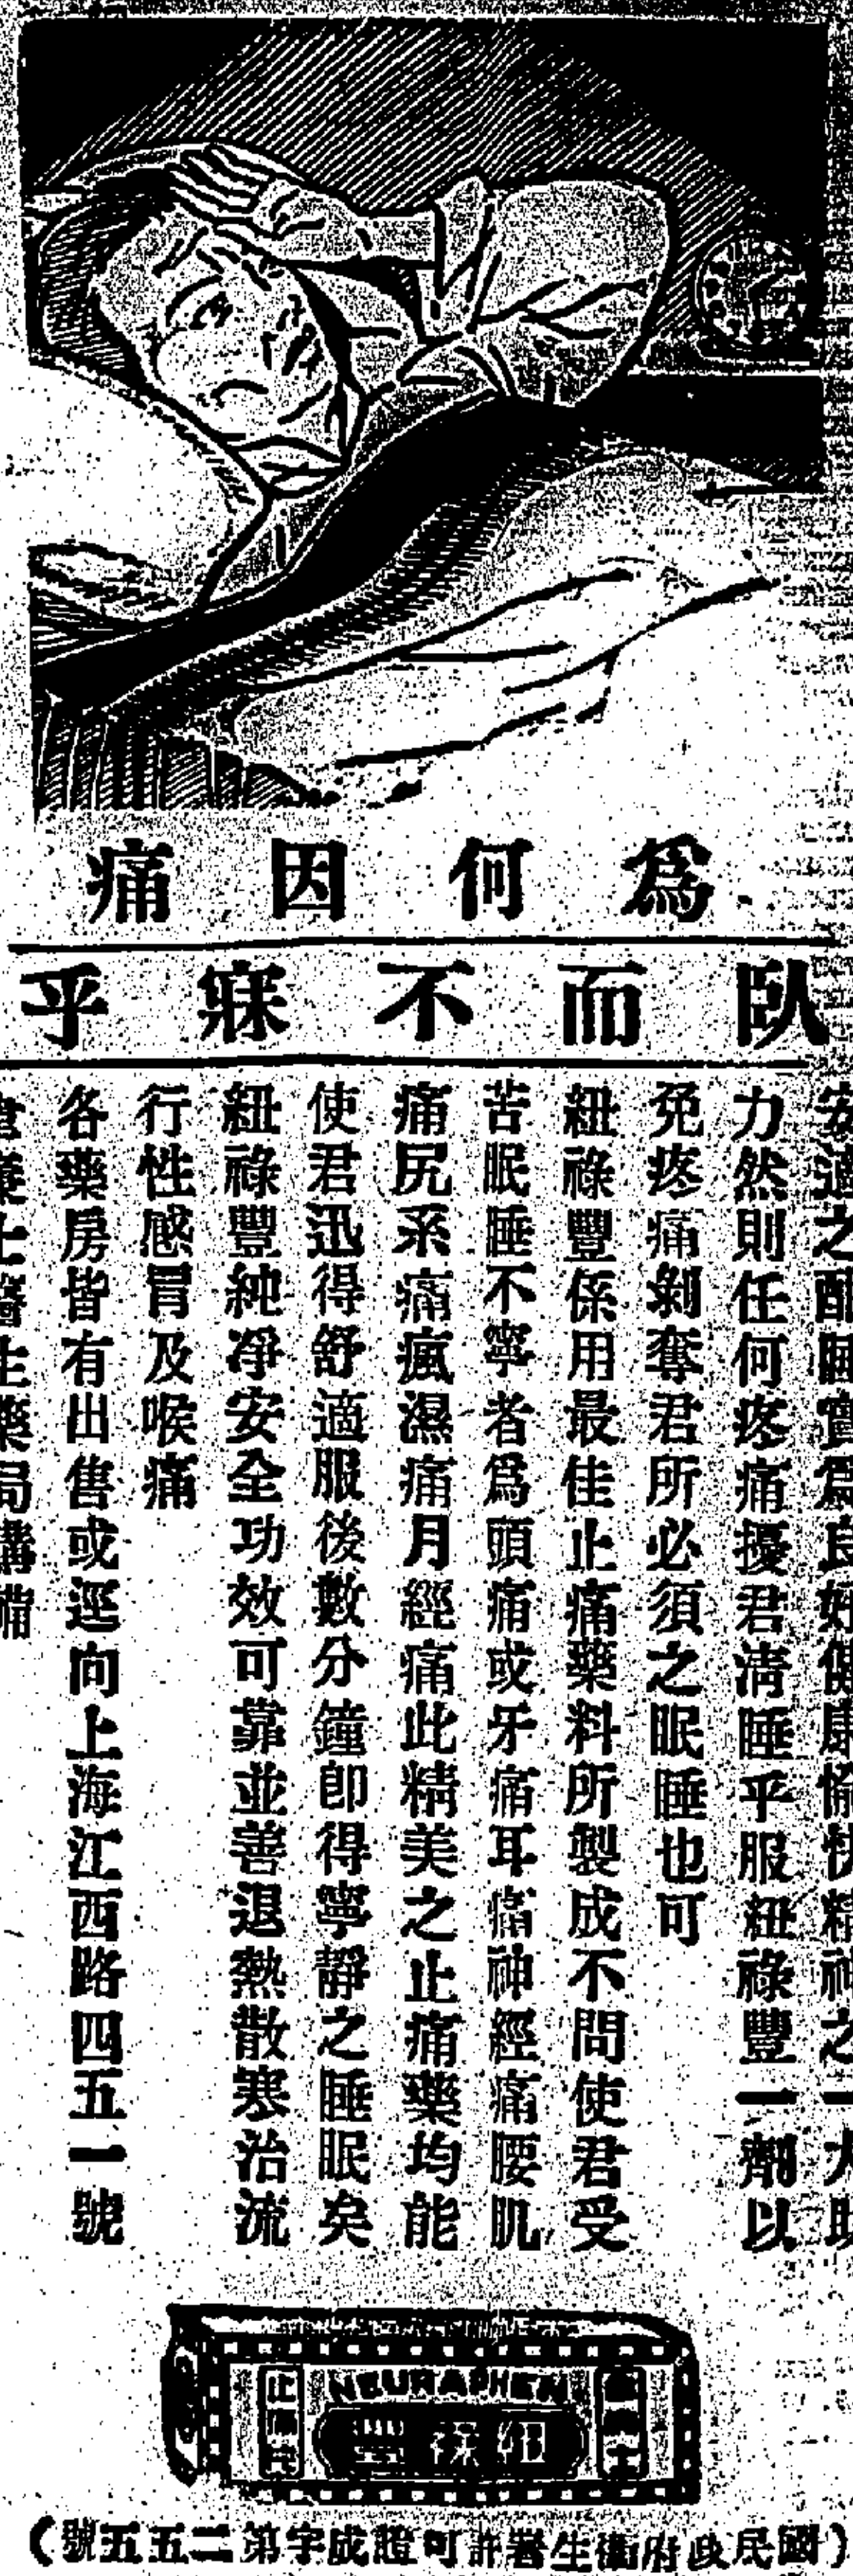 爲何因痛
臥而不寐乎
安適之酣睡實爲良好健康愉快精神之一大助
力然則任何疼痛擾君淸睡乎服紐祿豐一劑以
免疼痛剝奪君所必須之眠睡也可
紐祿豐係用最佳止痛藥料所製成不問使君受
苦眠睡不寧者爲頭痛或牙痛耳痛神經痛腰肌
痛尻系痛瘋濕痛月經痛此精美之止痛藥均能
使君迅得舒適服後數分鐘卽得寧靜之睡眠矣
紐祿豐純凈安全功效可靠並善退熱散寒治流
行性感冒及喉痛
各藥房皆有出售或逕向上海江西路四五一號
韋廉士醫生藥局購
NEURAPHEN
紐祿豐
止痛片
韋廉士
(國民政府衞生署許可證成字第二五五號)